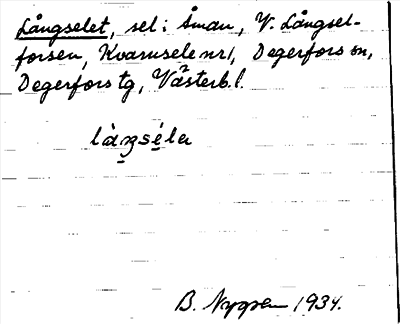 Långselet, sel i Åman, V. Långsel-
forsen, Kvarnsele nr 1, Degerfors sn,
Degerfors tg, Västerb. l.
lå̀ŋsé̱la
B. Nygren 1934.